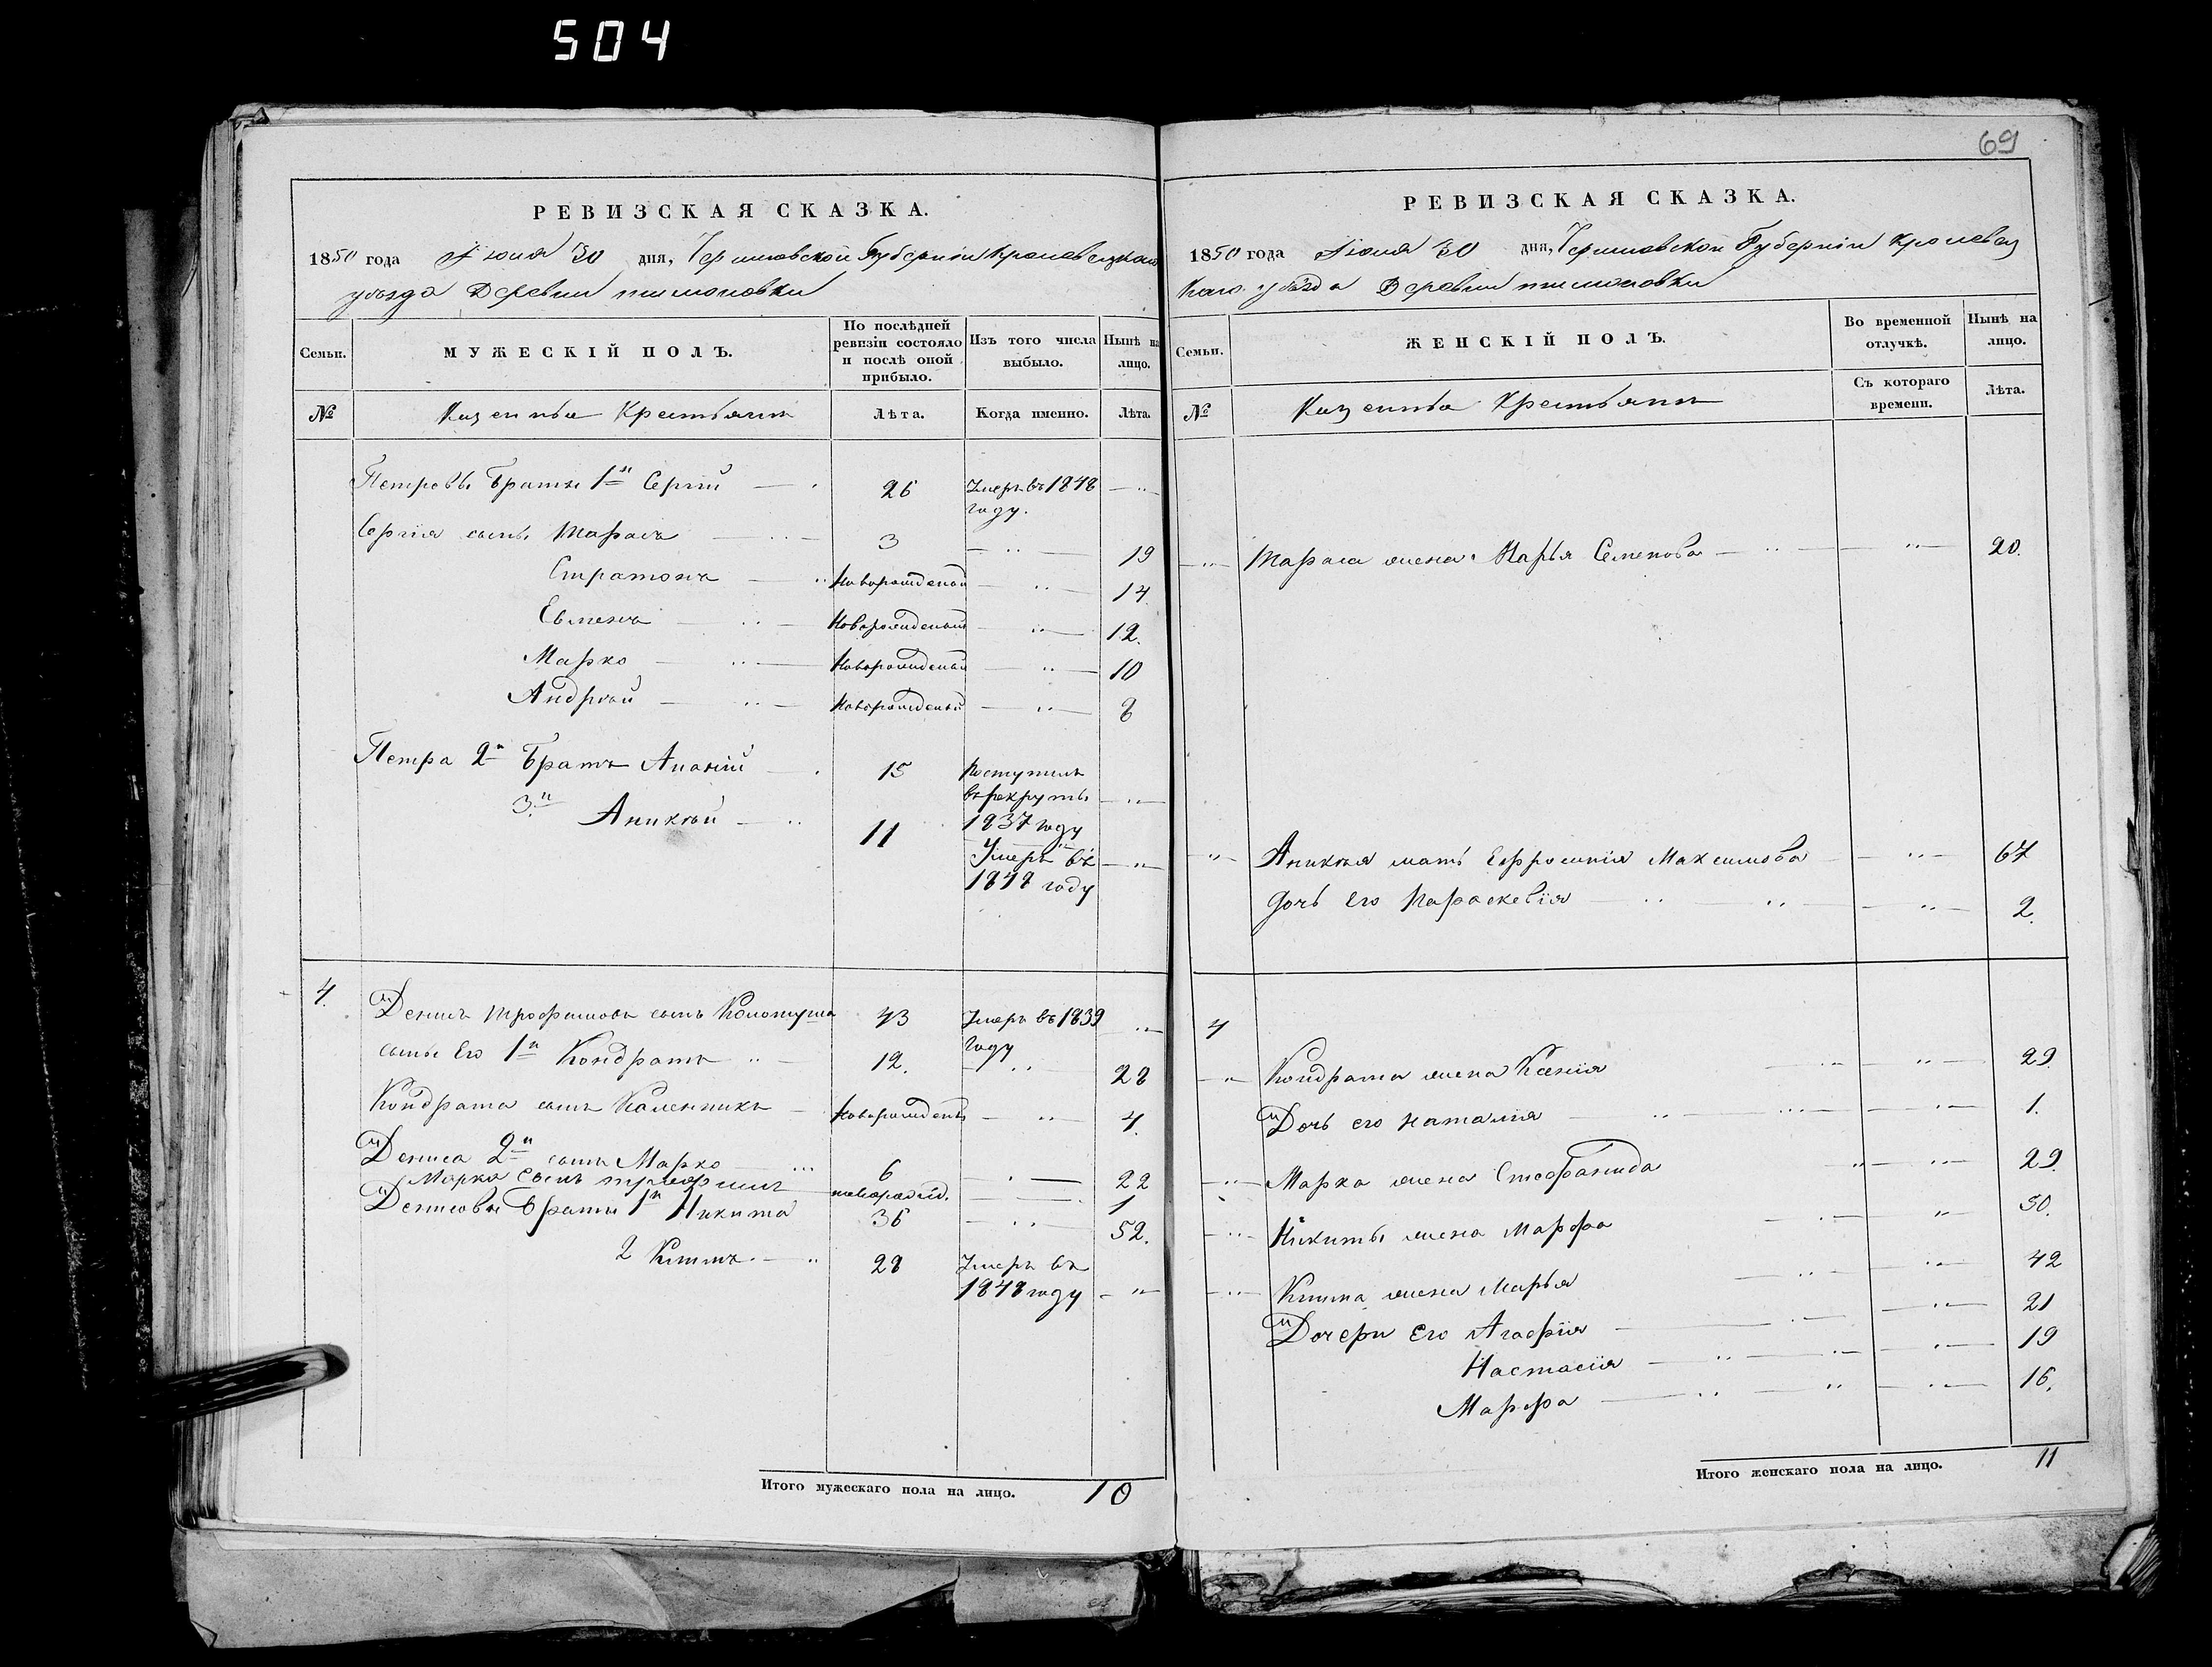 504
69
РЕВИЗСКАЯ СКАЗКА.
1850 года Июня 30 дня, Черниговской Губерніи Кролевецкаго
уѣзда Деревни
Семьи.
МУЖЕСКІЙ ПОЛЪ.
По послѣдней ревизіи состояло и послѣ оной прибыло.
Изъ того числа выбыло.
Нынѣ на лицо.
№
Казенные Крестьяне
Лѣта.
Когда именно.
Лѣта.
Петровы братья 1й Сергій 26 Умеръ въ 1848
году.
Сергія сынъ Тарасъ 3 19
Стратонъ Новорожденный 14
Евменъ Новорожденный 12.
Марко Новорожденный 10
Андрѣй Новорожденный 8
Петра 2й Братъ Ананій 15 Поступилъ
въ рекруты
1837 году
3й Аникѣй 11 Умеръ въ
1848 году
4. Денисъ Трофимовъ сынъ 43 Умеръ въ 1839
году
сынъ Его 1й Кондратъ 12. 28
Кондрата сынъ Каленникъ Новорожденъ 4.
Дениса 2й сынъ Марко 6 22
Марка сынъ новорожд. 1
Денисовы братья 1й Никита 36 52.
2 Климъ 28 Умеръ въ
1848 году
Итого мужескаго пола на лицо. 10
РЕВИЗСКАЯ СКАЗКА.
1850 года Июня 30 дня, Черниговской Губерніи Кролевец
каго уѣзда Деревни
Семьи.
ЖЕНСКІЙ ПОЛЪ.
Во временной отлучкѣ.
Нынѣ на лицо.
№
Казенные Крестьяне
Съ котораго времени.
Лѣта.
Тараса жена Марья Семенова 20.
Аникѣя мать Ефросинія Максимова 67
дочь его Параскевія 2.
4
Кондрата жена Ксенія 29.
Дочь его Наталія 1.
Марка жена Стефанида 29.
Никиты жена Марфа 50.
Клима жена Марья 42
Дочери Его Агафія 21
Настасія 19
Марфа 16.
Итого женскаго пола на лицо. 11